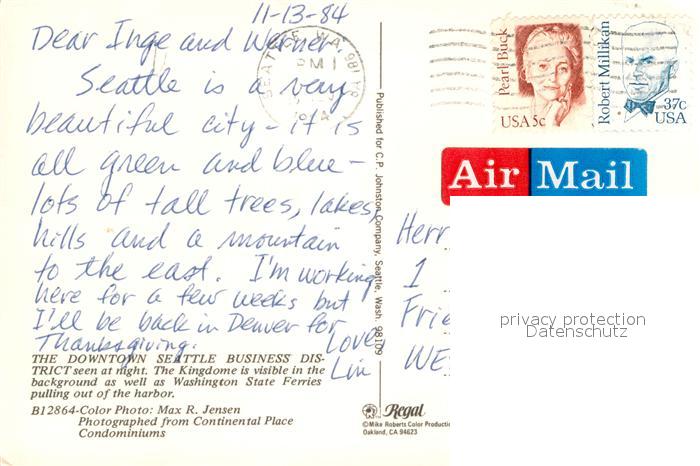 11-13-84
Dear Inge and Werner
Seattle is a very
beautiful city - it is
all green and blue -
lots of tall trees, lakes,
hills and a mountain
to the east. I'm working
here for a few weeks but
I'll be back in Denver for
Thanksgiving. Love
Lin
THE DOWNTOWN SEATTLE BUSINESS DIS-
TRICT seen at night. The Kingdome is visible in the
background as well as Washington State Ferries
pulling out of the harbor.
B12864-Color Photo: Max R. Jensen
Photographed from Continental Place
Condominiums
Published for C.P. Johnston Company, Seattle, Wash. 98109
Regal
©Mike Roberts Color Productio
Oakland, CA 94623
SEATTLE, WA. 981
PM
Pearl Buck
USA 5c
Robert Millikan
37c
USA
Air Mail
Herr
1
Frie
WE
privacy protection
Datenschutz